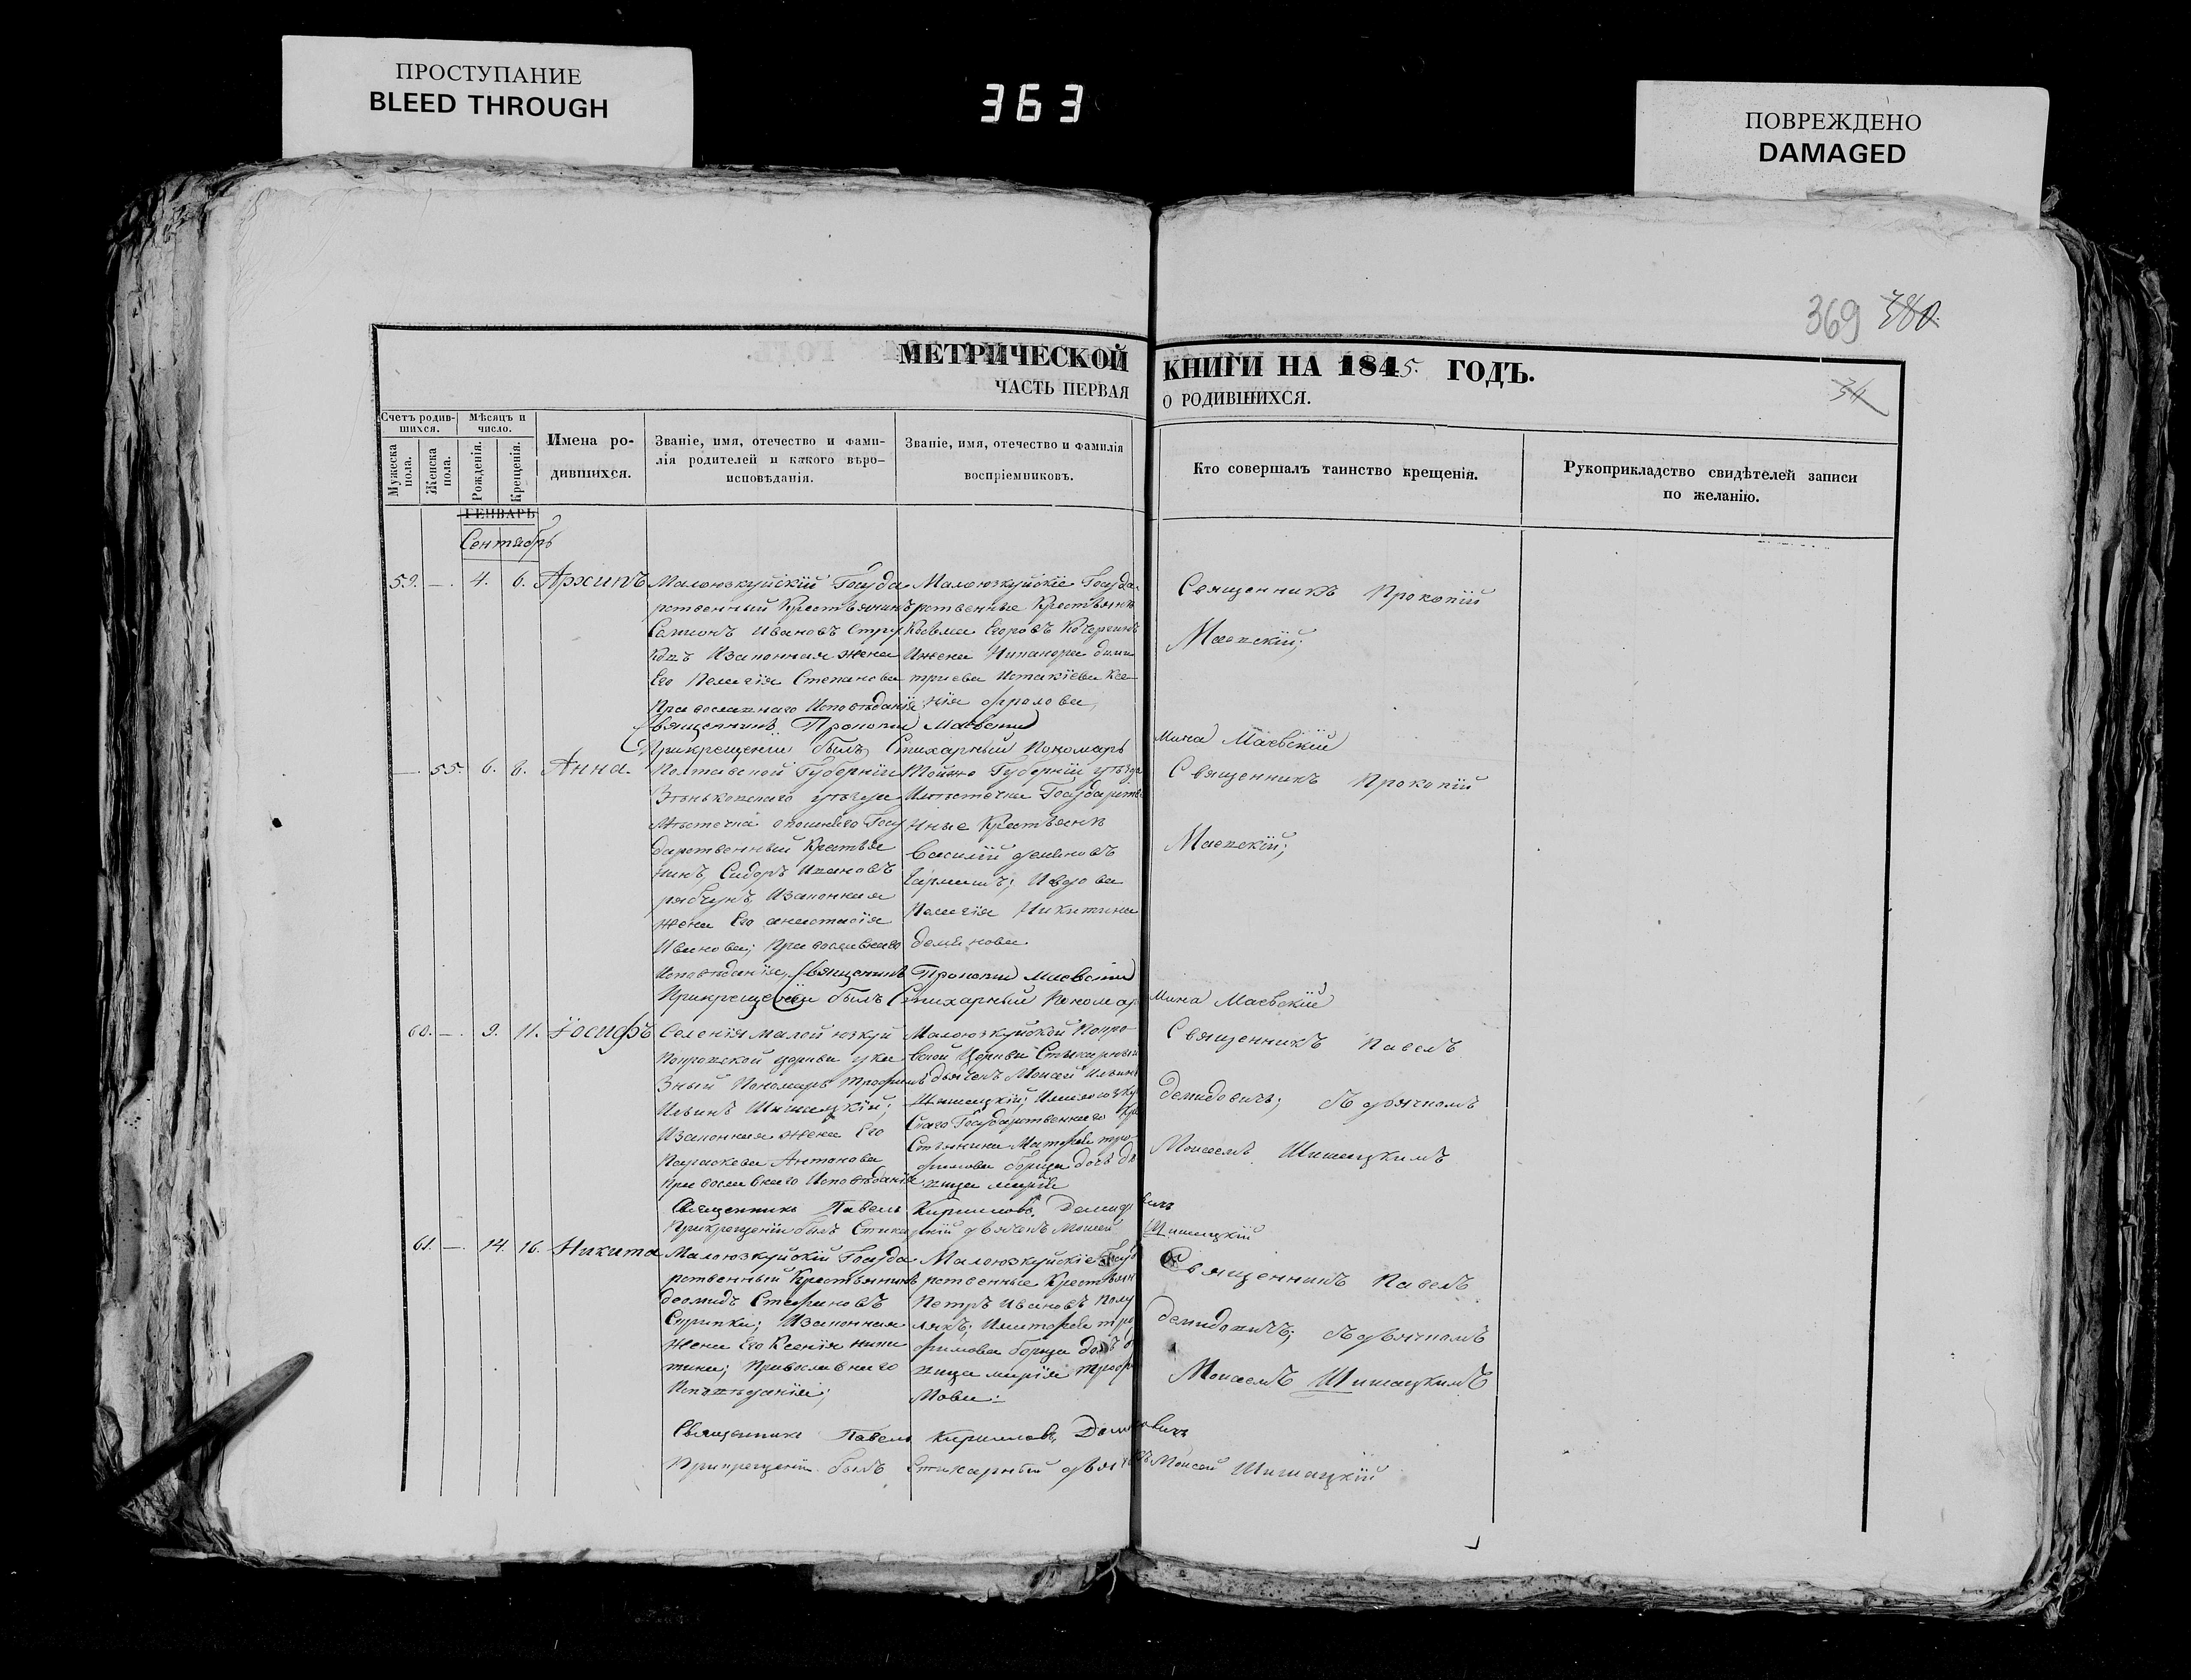 ПРОСТУПАНИЕ
BLEED THROUGH
363
ПОВРЕЖДЕНО
DAMAGED
369 380.
34
МЕТРИЧЕСКОЙ КНИГИ НА 1845. ГОДЪ.
ЧАСТЬ ПЕРВАЯ О РОДИВШИХСЯ.
Счетъ родив-
шихся.
Мужеска
пола.
Женска
пола.
Мѣсяцъ и
число.
Рожденія.
Крещенія.
Имена ро-
дившихся.
Званіе, имя, отечество и фами-
лія родителей и какого вѣро-
исповѣданія.
Званіе, имя, отечество и фамилія
воспріемниковъ.
Кто совершалъ таинство крещенія.
Рукоприкладство свидѣтелей записи
по желанію.
ГЕНВАРЬ
Сентябрь
59. — 4. 6. Архипъ
Малоюзкуйскій Госуда
рственный Крестьянинъ
Самсонъ Ивановъ
Изаконная жена
Его Пелагія Степанова
Православнаго Исповѣданія
Малоюзкуйскіе Госуда
рственные Крестьяне
Козьма Егоровъ Кочергинъ
Ижена
Фролова
Священникъ Прокопій
Маевскій;
Священникъ Прокопій Маевскій
Прикрещеніи былъ Стихарный Пономарь Мина Маевскій
— 55. 6. 8. Анна.
Полтавской Губерніи
Зѣньковскаго уѣзда
Мѣстечка Опошнего Госу
дарственный Крестья
нинъ, Сидоръ Ивановъ
рябчунъ, Изаконная
жена Его анастасія
Иванова; Православнаго
Исповѣданія,
Тойжо Губерніи уѣзда
Имѣстечка Государстве
нные Крестьяне
Василій
Ивдова
Пелагія Никитина
Священникъ Прокопій
Маевскій;
Священникъ Прокопій Маевскій
Прикрещеніи былъ Стихарный Пономарь Мина Маевскій
60. — 9. 11. Іосифъ
Селенія Малой юзкуй
Покровской церкви ука
зный Пономарь Трофимъ
Ильинъ Шишацкій;
Изаконная жена Его
Параскева Антонова
православнаго Исповѣданія
Малоюзкуйской Покро
вской Церкви Стихарный
дьячекъ Моисей Ильинъ
Шишацкій;
скаго Государственнаго Кре
стьянина
Священникъ Павелъ
Демидовичъ; Съ дьячкомъ
Моисеемъ Шишацкимъ
Священникъ Павелъ Кирилловъ Демидовичъ
Прикрещеніи былъ Стихарный дьячекъ Моисей Шишацкій
61. — 14. 16. Никита
Малоюзкуйскій Госуда
рственный Крестьянинъ
Стефановъ
Скрипка; Изаконная
жена Его Ксенія Ники
тина; Православнаго
Исповѣданія;
Малоюзкуйскіе Госуд
рственные Крестьяне
Петръ Ивановъ Полу
лякъ;
марія Трофи
мова:
Священникъ Павелъ
Демидовичъ; Съ дьячкомъ
Моисеемъ Шишацкимъ
Священникъ Павелъ Кирилловъ Демидовичъ
Прикрещеніи былъ Стихарный дьячекъ Моисей Шишацкій